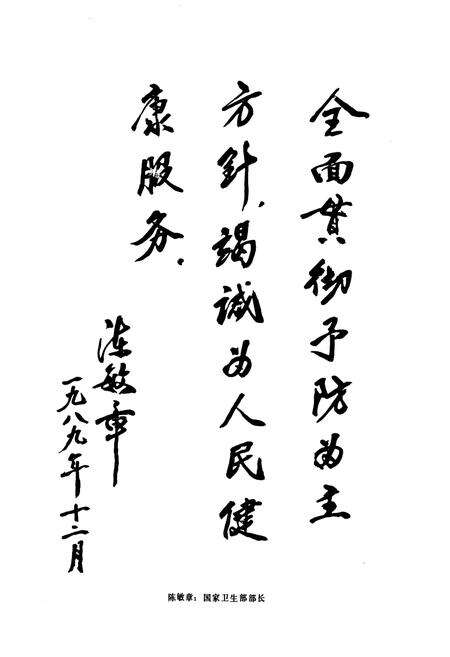 全面贯彻予防为主
方針，竭诚为人民健
康服务。
陈敏章
一九八九年十二月
陈敏章：国家卫生部部长